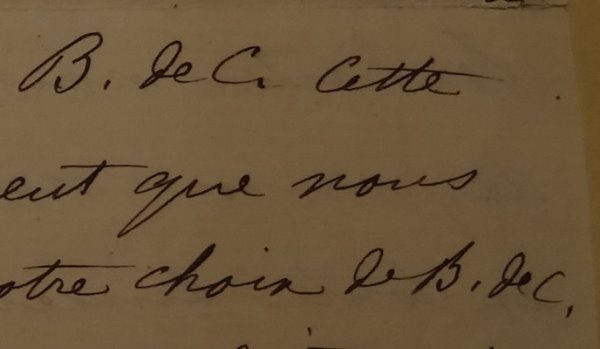 B. de C. Cette
ent que nous
otre choix de B. de C.